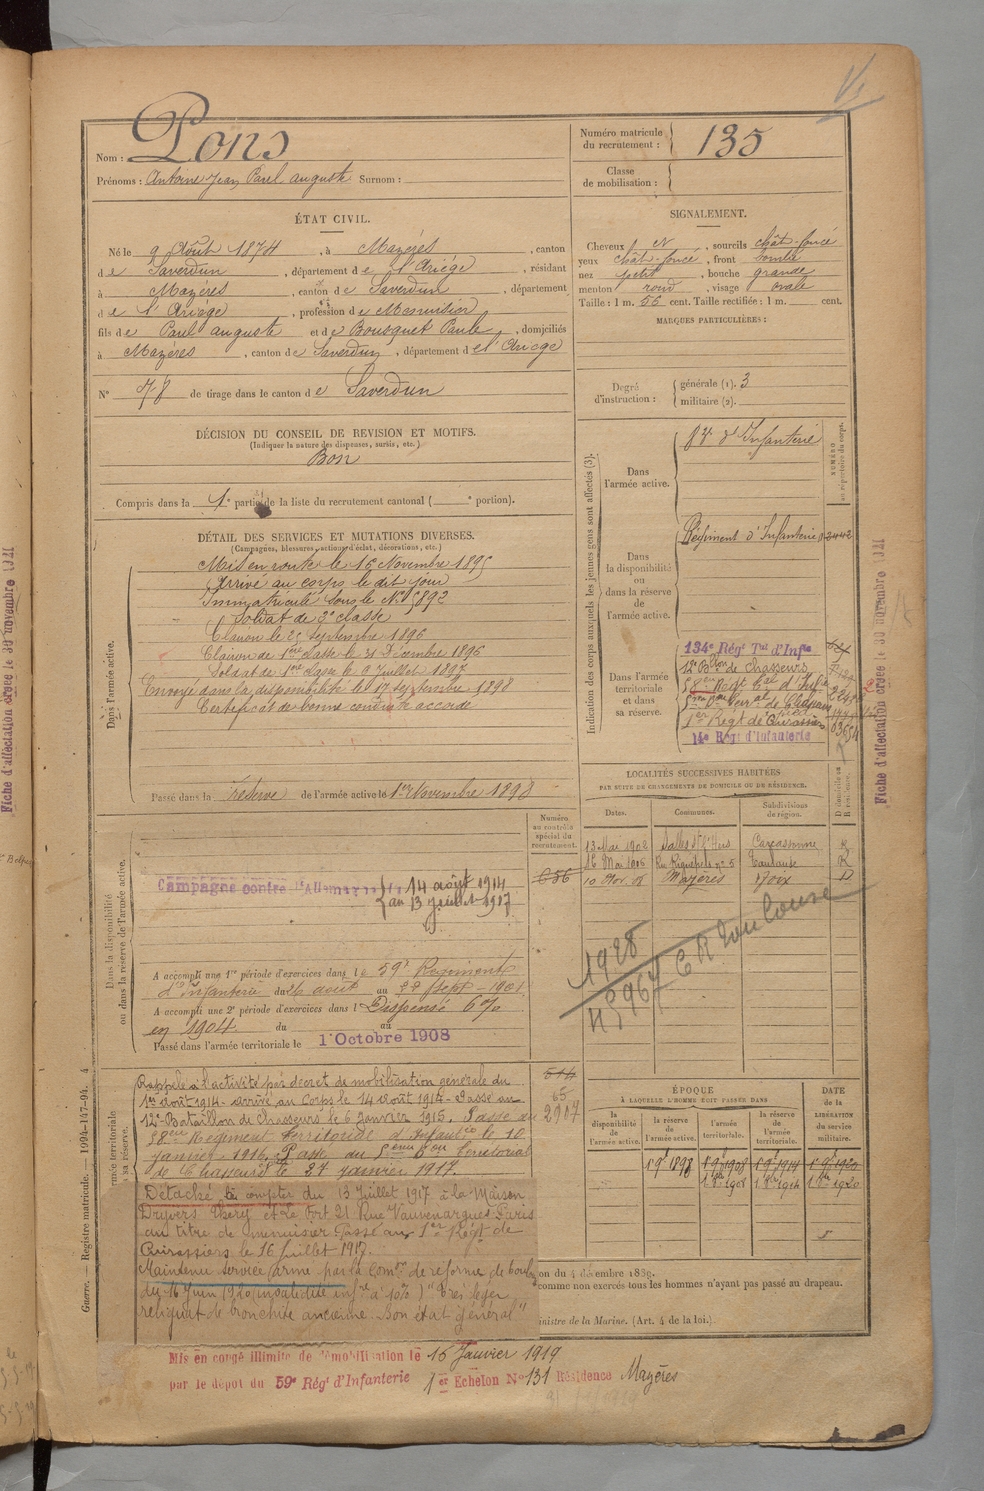 Nom : Pons
Prénoms : Antoine Jean Paul auguste Surnom :
Numéro matricule du recrutement : 135
Classe de mobilisation :
ÉTAT CIVIL.
Né le 9 Août 1874, à Mazérés, canton
de Saverdun, département de l'Ariége, résidant
à Mazérés, canton de Saverdun, département
de l'Ariége, profession de Menuisier
fils de Paul auguste et de Bousquet Paule, domiciliés
à Mazéres, canton de Saverdun, département de l'Ariege
N° 78 de tirage dans le canton de Saverdun
SIGNALEMENT.
Cheveux N, sourcils chât-foncé
yeux chât-foncé, front
nez petit, bouche grande
menton rond, visage ovale
Taille : 1 m. 56 cent. Taille rectifiée : 1 m. cent.
MARQUES PARTICULIÈRES :
Degré d'instruction : générale (1). 3
militaire (2).
DÉCISION DU CONSEIL DE REVISION ET MOTIFS.
(Indiquer la nature des dispenses, sursis, etc.)
Bon
Compris dans la 1e partie de la liste du recrutement cantonal ( e portion).
DÉTAIL DES SERVICES ET MUTATIONS DIVERSES.
(Campagnes, blessures, actions d'éclat, décorations, etc.)
Dans l'armée active.
Mis en route le 16 Novembre 1895
Arrivé au corps le dit jour
Immatriculé sous le N° 5892
Soldat de 2e classe
Clairon le 25 Septembre 1896
Clairon de 1ere classe le 31 Décembre 1896
Soldat de 1ere classe le 9 Juillet 1897
Envoyé dans la disponibilité le 17 septembre 1898
Certificat de bonne conduite accordé
Passé dans la réserve de l'armée active le 1er Novembre 1898
Indication des corps auxquels les jeunes gens sont affectés (3).
NUMÉRO au répertoire du corps.
Dans l'armée active.
d'Infanterie
Dans la disponibilité ou dans la réserve de l'armée active.
Régiment d'Infanterie
Dans l'armée territoriale et dans sa réserve.
134e Régt Tal d'Infie
12e Bton de Chasseurs
1er Regt de Cuirassiers
14e Régt d'Infanterie
Fiche d'affectation créée le 30 novembre
Fiche d'affectation créée le 30 novembre
LOCALITÉS SUCCESSIVES HABITÉES
PAR SUITE DE CHANGEMENTS DE DOMICILE OU DE RÉSIDENCE.
Dates. Communes. Subdivisions de région. D domicile ou R résidence.
13 Mai 1902 Salles s/ l'Hers Carcassonne R
16 Mai 1906 Rue Riquepels n° 5 Toulouse R
10 Mazères Foix D
1928
45967 C R Toulouse
Dans la disponibilité ou dans la réserve de l'armée active.
Numéro au contrôle spécial du recrutement.
656
Campagne contre l'Allemagne du 14 août 1914
au 13 juillet 1917
A accompli une 1re période d'exercices dans le 59e Régiment
d'Infanterie du 26 août au 22 Sept - 1901
A accompli une 2e période d'exercices dans l Dispensé 6%
en 1904 du au
Passé dans l'armée territoriale le 1 Octobre 1908
Rappelé à l'activité par décret de mobilisation générale du
1er Août 1914 - arrivé au Corps le 14 août 1914 - Passé au
12e Bataillon de Chasseurs le 6 Janvier 1915. Passé au
58eme Régiment Territorial d'Infantrie le 10
janvier 1916. Passé au 5eme Bon Territorial
de Chasseurs le 27 janvier 1917.
Détaché à compter du 13 Juillet 1917 à la Maison
Dryvers Théry et Le Fort 21 Rue Vauvenargues Paris
au titre de menuisier Passé au 1er Régt de
Cuirassiers le 16 Juillet 1917.
Maintenu service armé par la Comon de reforme de
du 16 Juin 1920 invalidité infre à 10% "Très léger
reliquat de bronchite ancienne. Bon état général"
2907
ÉPOQUE
À LAQUELLE L'HOMME DOIT PASSER DANS
DATE DE LA LIBÉRATION DU service militaire.
la disponibilité de l'armée active.
la réserve de l'armée active.
l'armée territoriale.
la réserve de l'armée territoriale.
1 9e 1898 1 9e 1908 1 9e 1914 1 9e 1920
on du 4 décembre 1889.
comme non exercés tous les hommes n'ayant pas passé au drapeau.
inistre de la Marine. (Art. 4 de la loi.)
Guerre. — Registre matricule. — 1094-147-94.
Mis en congé illimité de démobilisation le 15 Janvier 1919
par le dépot du 59e Régt d'Infanterie 1er Echelon N° 131 Résidence Mazères